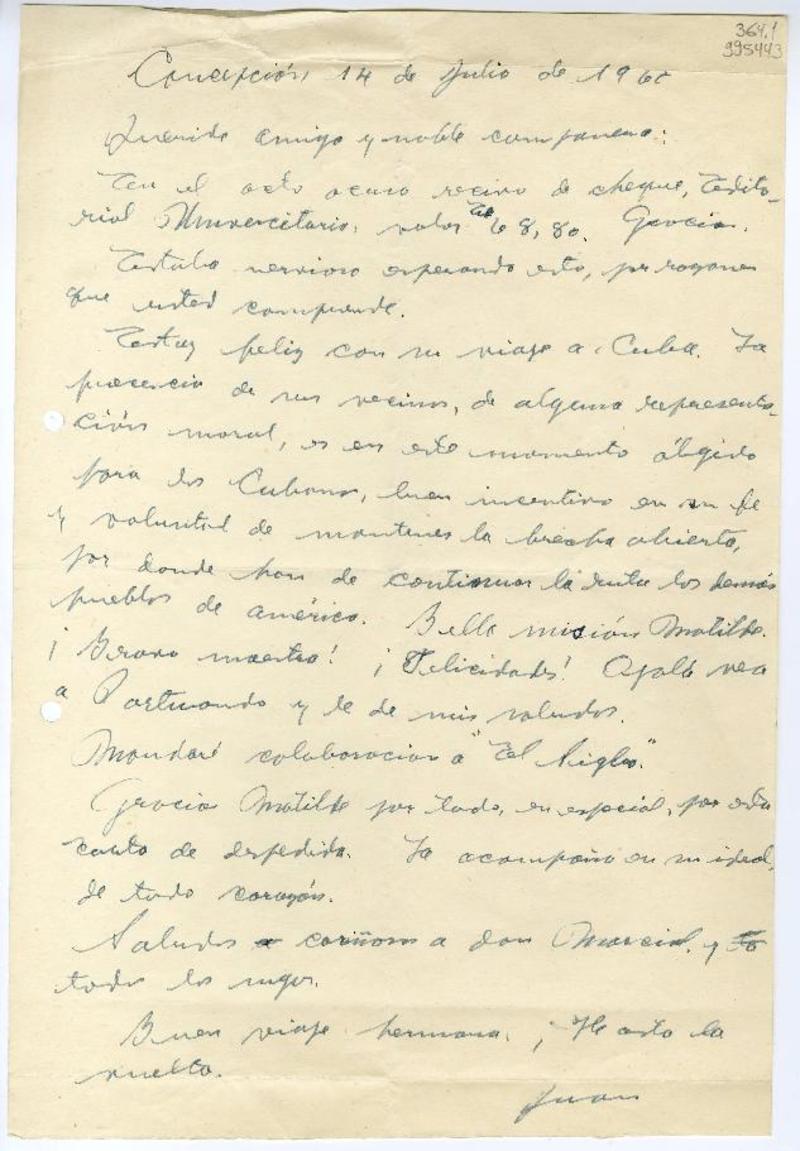 364.1
995443
Concepción, 14 de Julio de 1960
Querida amiga y noble compañera:
En el acto acuso recivo de cheque, Edito-
rial Universitaria, valor E 68,80. Gracias.
Estaba nervioso esperando esto, por razones
que usted comprende.
Estoy feliz con su viaje a Cuba. La
presencia de sus vecinos, de alguna representa-
ción moral, es en este momento álgido
para los Cubanos, buen incentivo en su fe
y voluntad de mantener la brecha abierta,
por donde han de continuar la ruta los demás
pueblos de américa. Bella misión Matilde.
¡Bravo maestra! ¡Felicidades! Ojalá vea
a Portuondo y le de mis saludos.
Mandaré colaboracion a "El Siglo."
Gracias Matilde por todo, en especial, por esta
carta de despedida. La acompaño en su ideal,
de todo corazón.
Saludos cariñosos a don Marcial, y
todos los suyos.
Buen viaje hermana. ¡Hasta la
vuelta.
Juan